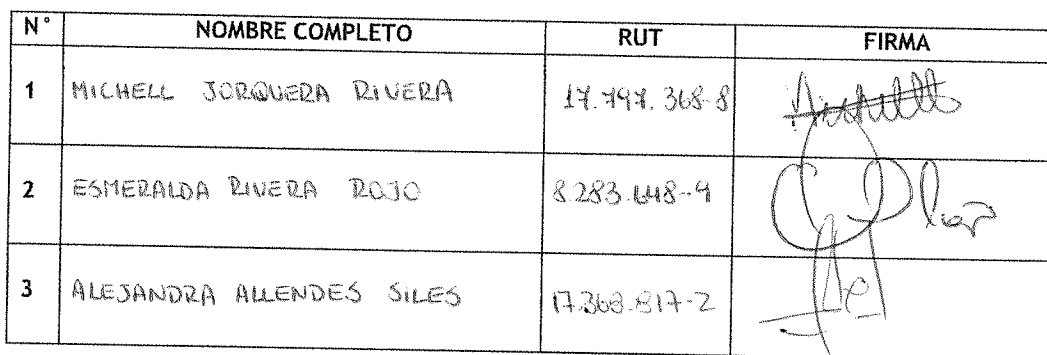 N° NOMBRE COMPLETO RUT FIRMA
1 MICHELL JORQUERA RIVERA 17.797.368-8
2 ESMERALDA RIVERA ROJO 8.283.648-9
3 ALEJANDRA ALLENDES SILES 17.368.817-2